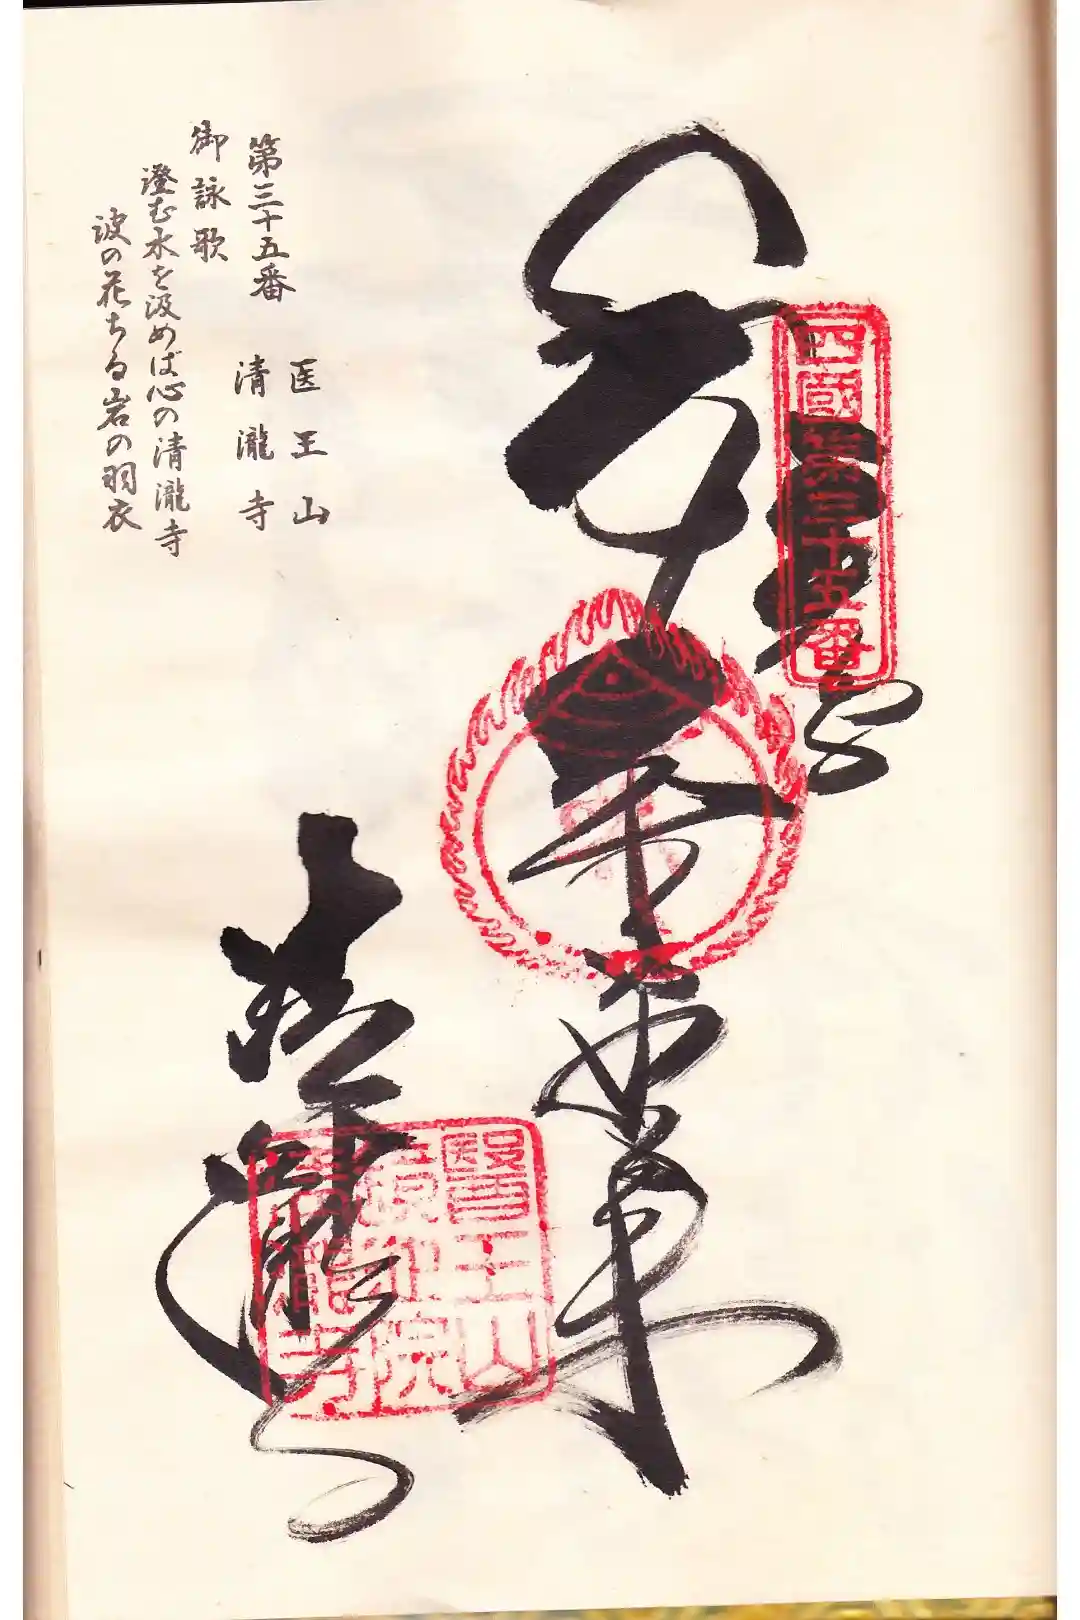 四國第三十五番
醫王山
鏡池院
清瀧寺
清瀧寺
医王山
第三十五番 清瀧寺
御詠歌
澄む水を汲めば心の清瀧寺
波の花ちる岩の羽衣